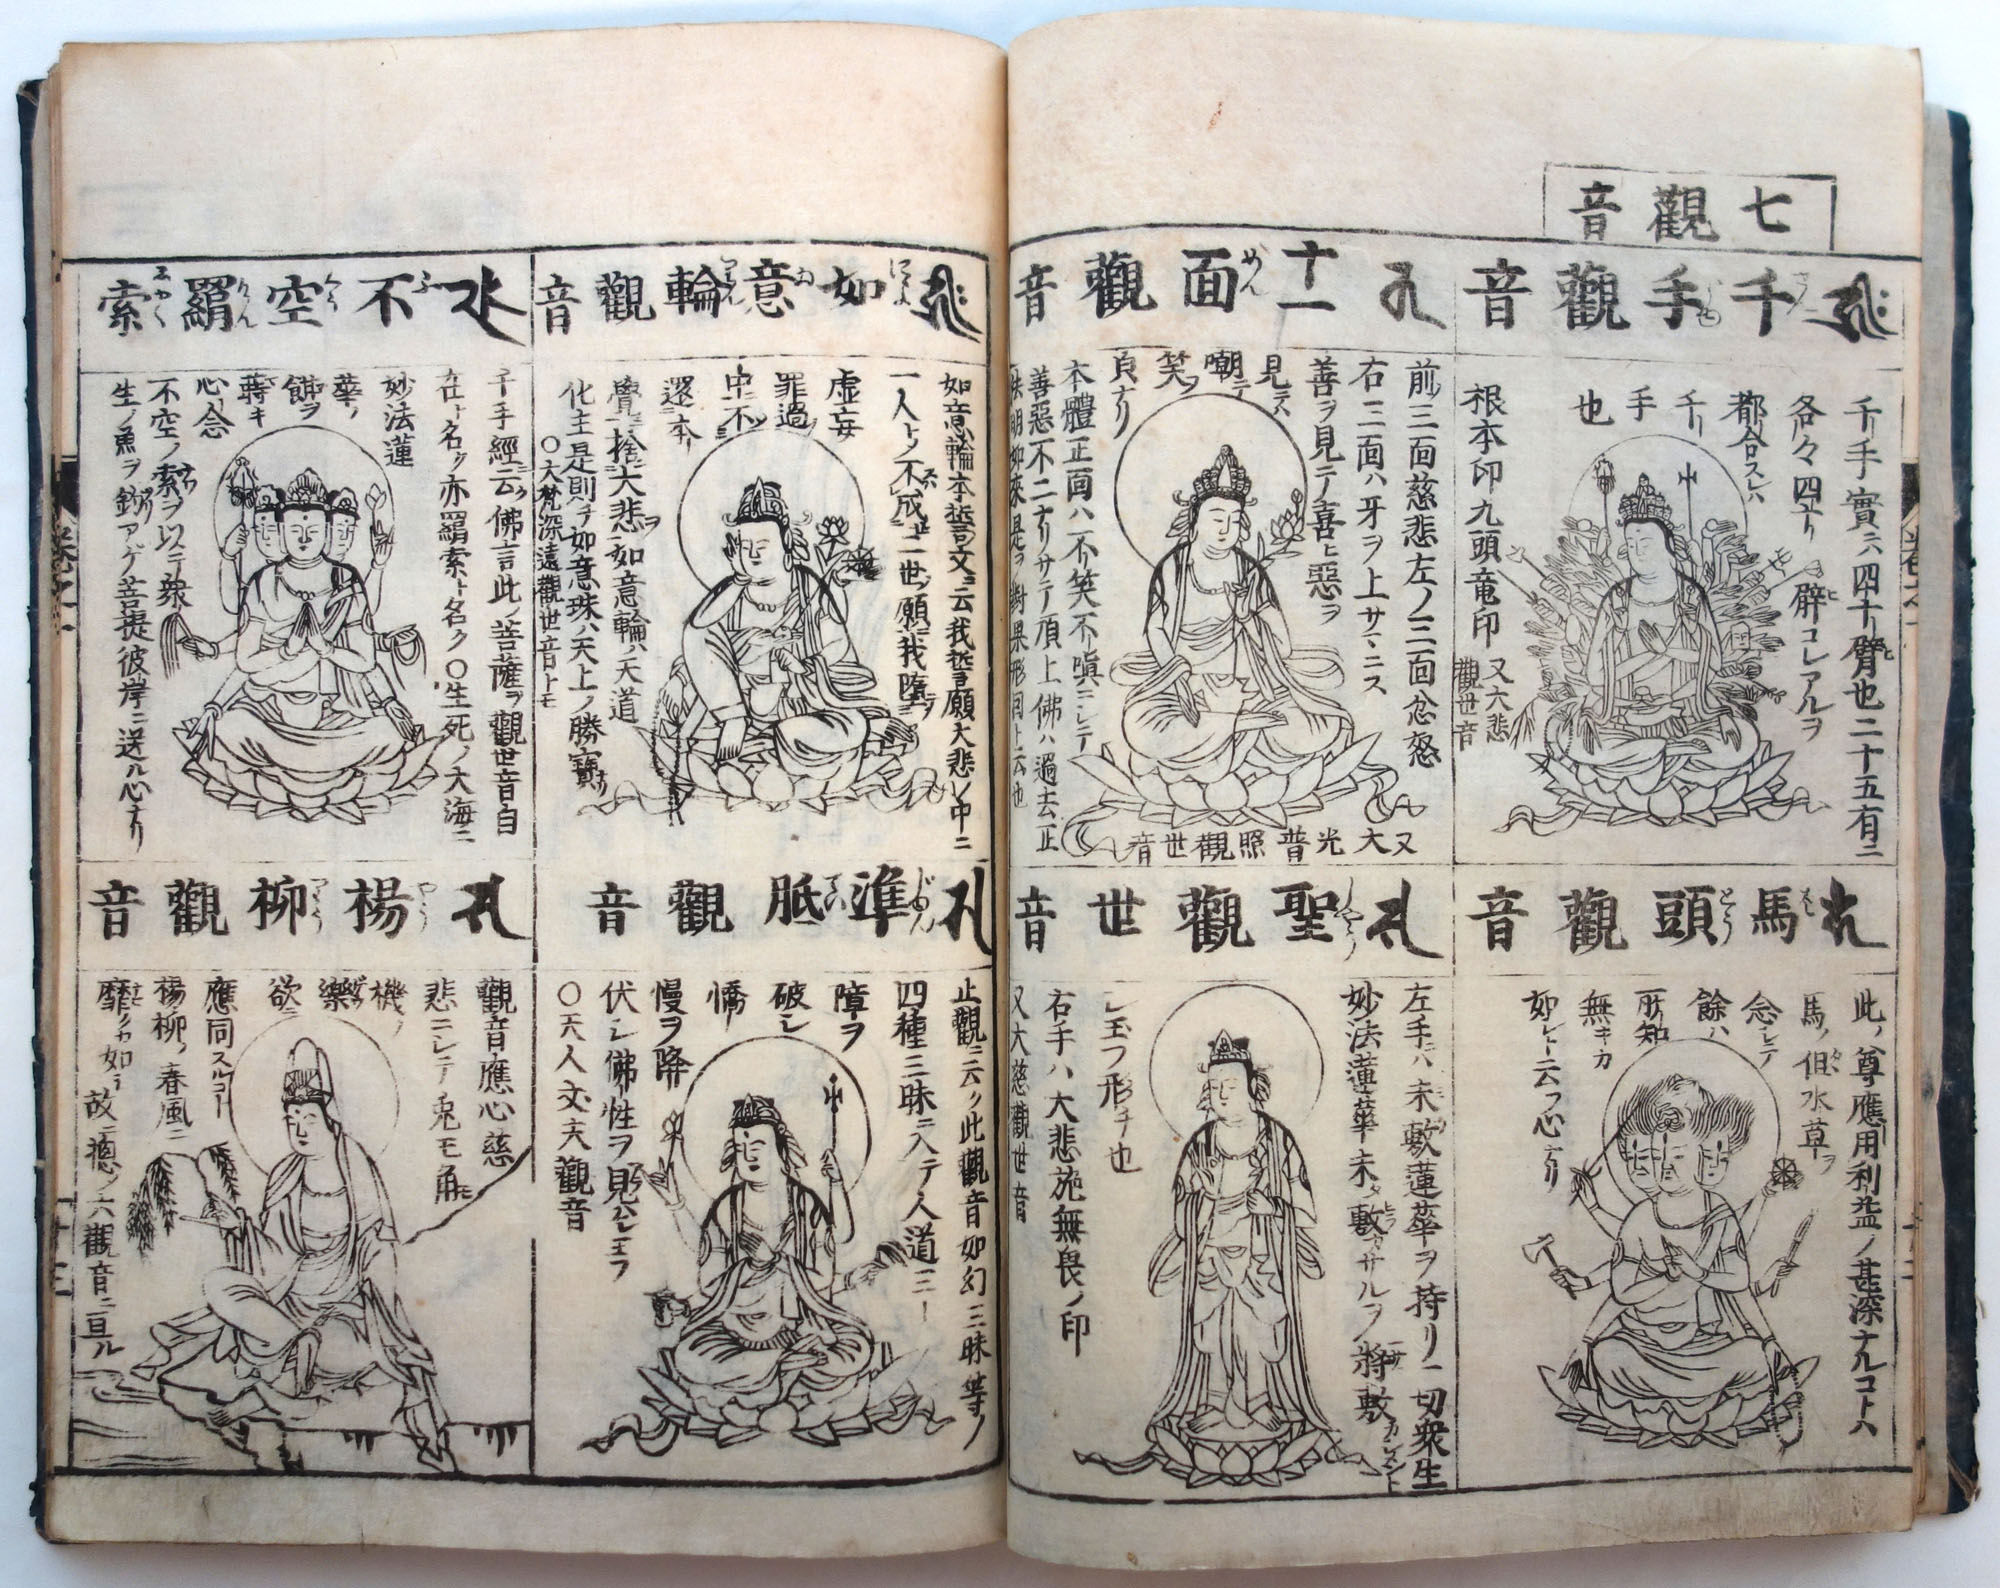 七觀音
千手觀音
千手實ハ四十臂也二十五有ニ
各々四十ノ臂コレアルヲ
都合スレハ
千ノ
手
也
根本印九頭竜印
又大悲
觀世音
馬頭觀音
此ノ尊應用利益ノ甚深ナルコトハ
馬ノ但水草ヲ
念シテ
餘ハ
所知
無キカ
如シト云フ心ナリ
十一面觀音
前三面慈悲左ノ三面忿怒
右三面ハ牙ヲ上サマニス
善ヲ見テ喜ヒ惡ヲ
見テハ
嘲テ
笑ヲ
頁ナリ
本體正面ハ不笑不嗔ニシテ
善惡不二ナリサテ頂上佛ハ過去正
法明如來是ヲ對果形同ト云也
又大光普照觀世音
聖觀世音
左手ハ未敷蓮華ヲ持リ一切衆生
妙法蓮華未タ敷カサルヲ將敷カシメント
シ玉フ形チ也
右手ハ大悲施無畏ノ印
又大慈觀世音
如意輪觀音
如意輪本誓文ニ云我誓願大悲ノ中ニ
一人トノ不成二世願我墮
虚妄
罪過ノ
中不
還本
覺捨大悲ヲ如意輪ハ天道
化主是則チ如意珠ノ天上ノ勝寶ナリ
〇大梵深遠觀世音トモ
準胝觀音
止觀ニ云ク此觀音如幻三昧等ノ
四種三昧ニ入テ人道三
障ヲ
破シ
憍
慢ヲ降
伏シ佛性ヲ見セシメ玉フ
〇天人丈夫觀音
不空羂索
千手經ニ云ク佛言此ノ菩薩ヲ觀世音自
在ト名ク亦羂索ト名ク〇生死ノ大海ニ
妙法蓮
華ノ
餌ヲ
蒔キ
心念
不空ノ索ヲ以テ衆
生ノ魚ヲ釣アゲ菩提彼岸ニ送ル心ナリ
楊柳觀音
觀音應心慈
悲ニシテ兎モ角モ
機ノ
樂
欲ニ
應同スルコト
楊柳ノ春風ニ
靡クカ如ヲ
故ニ總ノ六觀音ニ亘ル